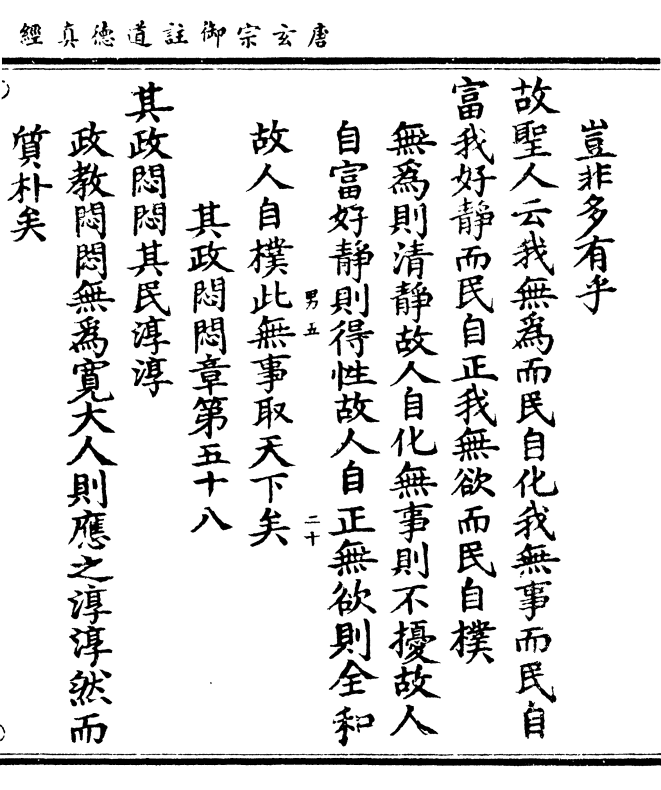 唐玄宗御註道德真經
豈非多有乎
故聖人云我無爲而民自化我無事而民自
富我好靜而民自正我無欲而民自樸
無爲則清靜故人自化無事則不擾故人
自富好靜則得性故人自正無欲則全和
男五 二十
故人自樸此無事取天下矣
其政悶悶章第五十八
其政悶悶其民淳淳
政教悶悶無爲寬大人則應之淳淳然而
質朴矣